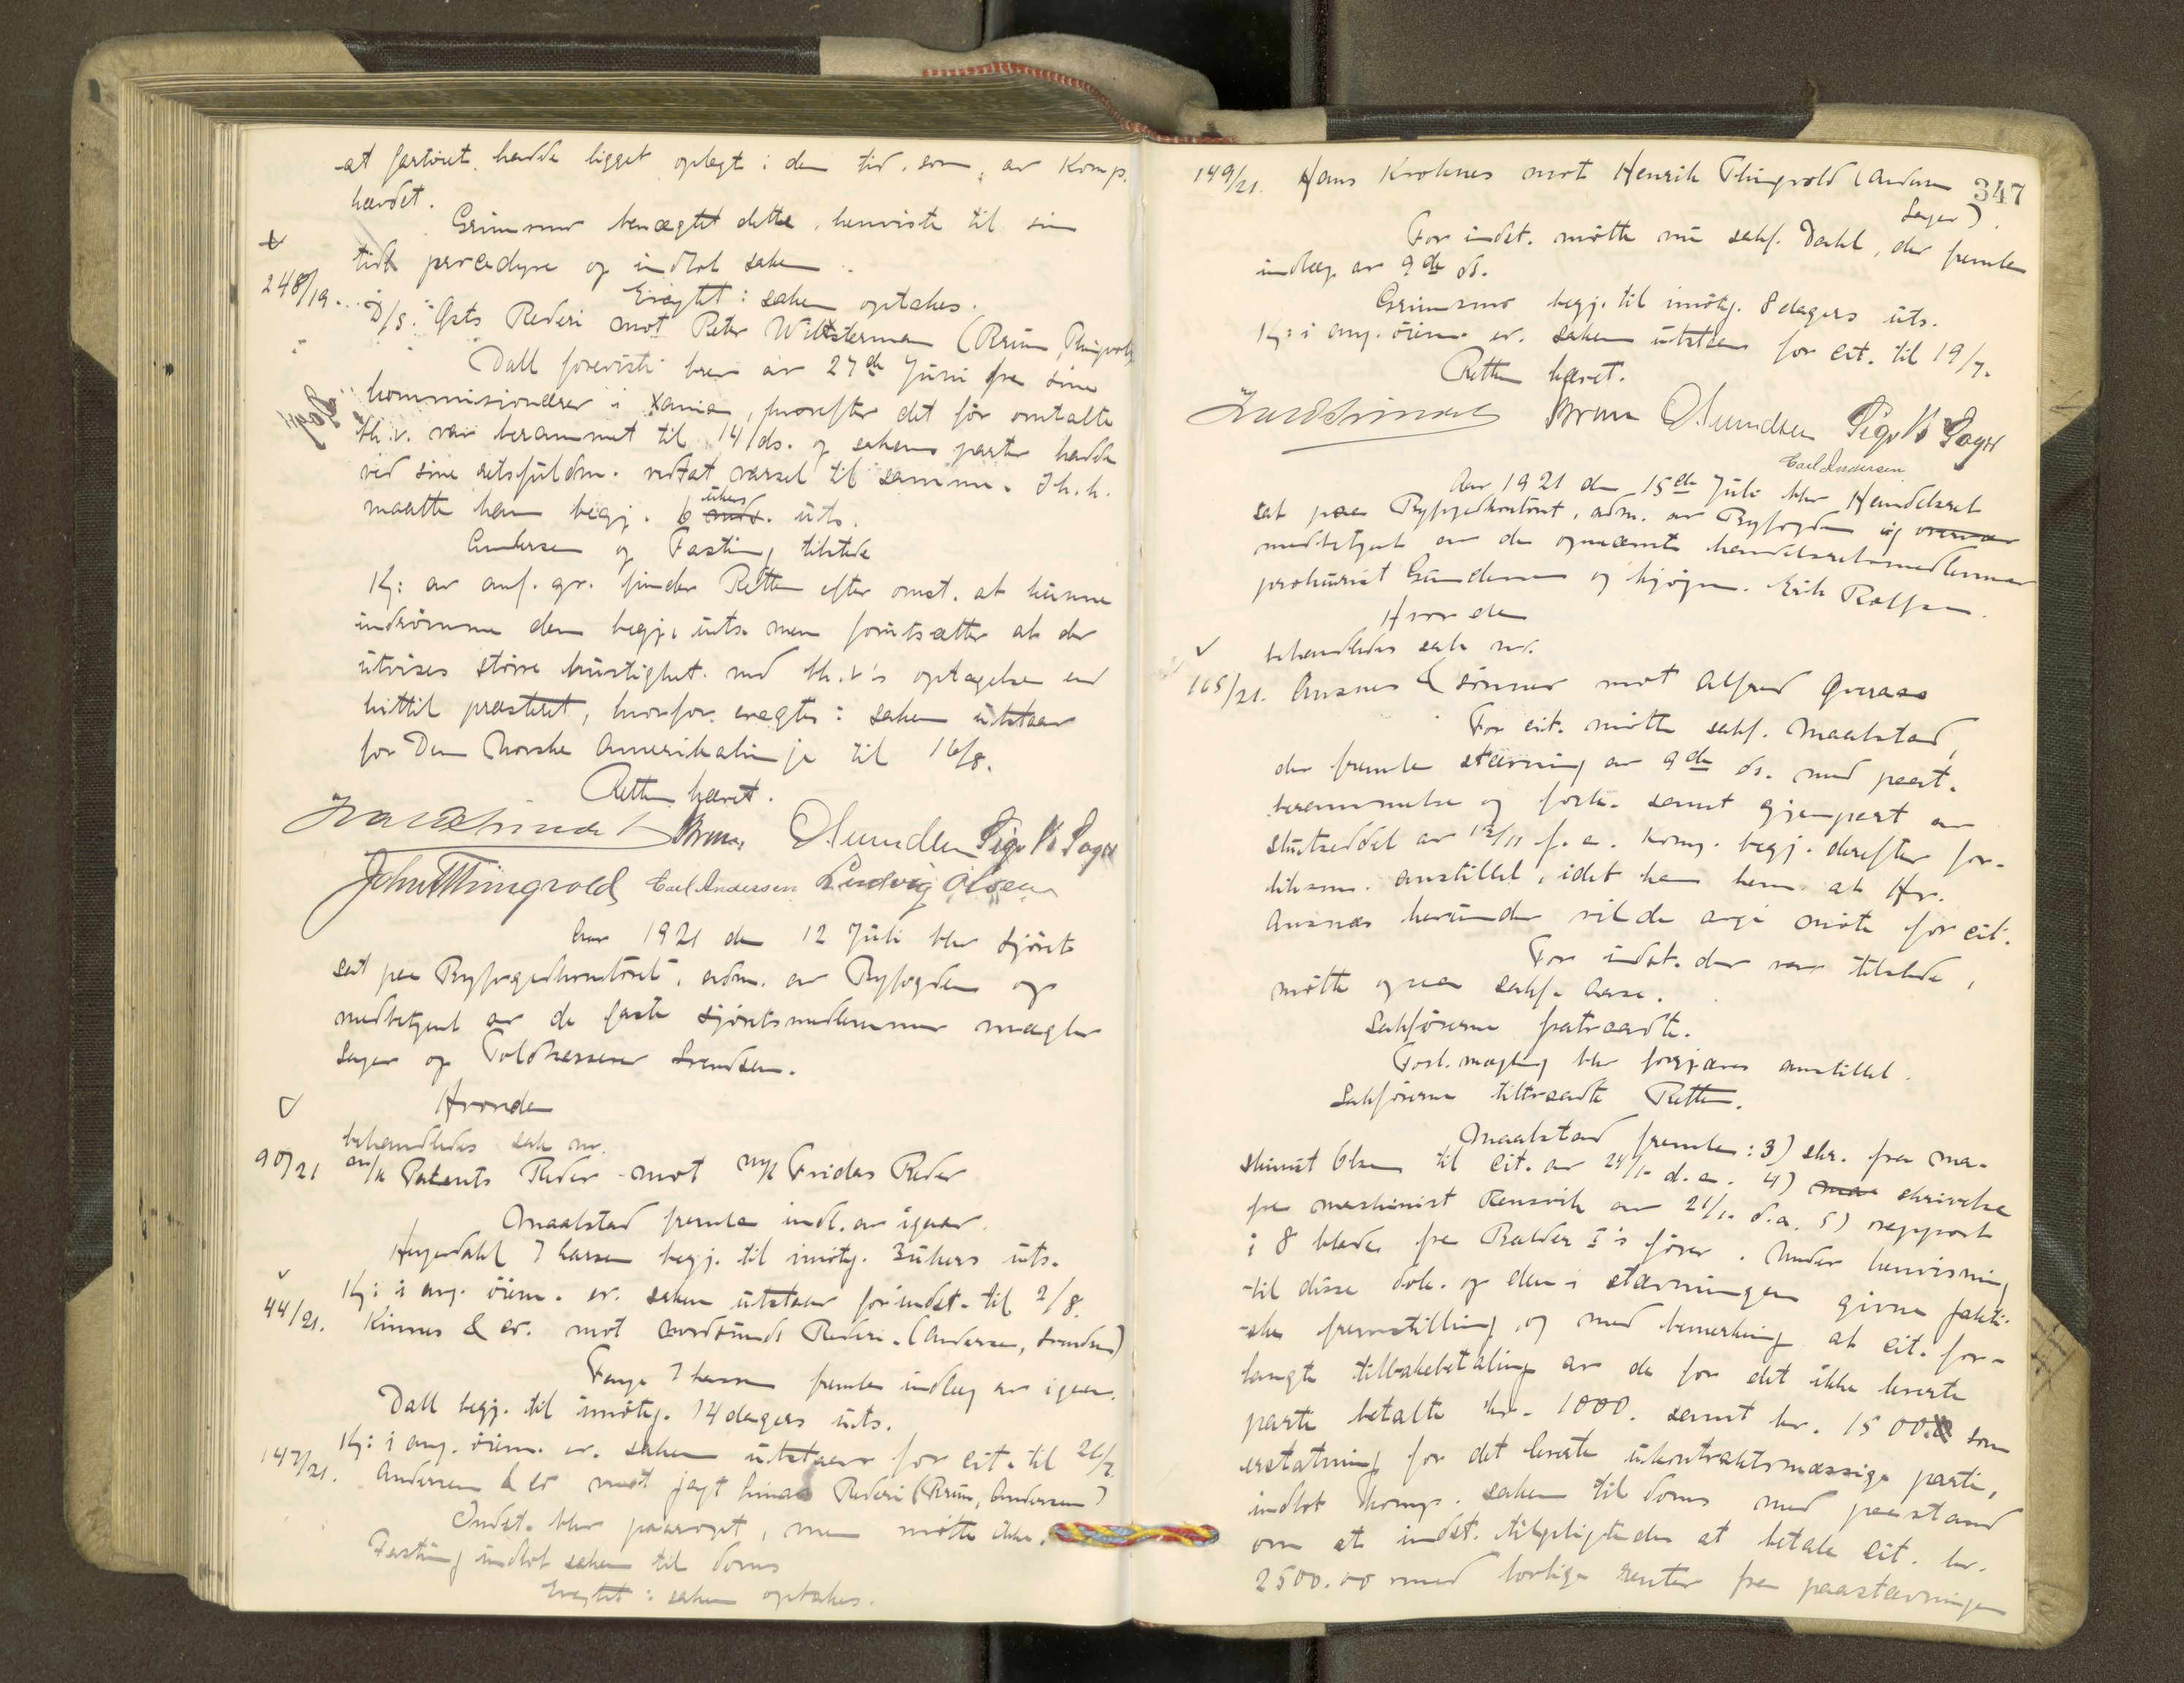 at fartöiet hadde ligget oplagt i den tid, som av Komp.
hævdet.
Grimsmo benægtet dette, henviste til sin
tidl procedyre og indlot saken.
Eragtet: saken optakes.
248/19. D/S. Gets Rederi mot Peter Wilsterman (Bruun, Thingvold
Dall foreviste brev av 27de Juni fra sine
kommissionærer i Xania, hvorefter det før omtalte
th.v. var berammet til 14/ds. og sakens parter hadde
ved sine retsfuldm. vedtat varsel til samme. I h. h.
maatte han begj. 6 ukers uts.
Andersen og Fasting tilstede
Kj: av anf. gr. finder Retten efter omst. at kunne
indrømme den begj. uts. men forutsætter at der
utvises større hurtighet med th.v's optagelse end
hittil præstert, hvorfor eragtes: saken utstaar
for Den Norske Amerikalinje til 16/8.
Retten hævet.
Bruun O Svendsen Sigv B Sager
John Thingvold Carl Andersen Ludvig Olsen
Aar 1921 den 12 Juli blev Sjöret
sat paa Byfogedkontoret, adm. av Byfogden og
medbetjent av de faste sjöretsmedlemmer mægler
Sager og Toldkasserer Svendsen.
Hvorda
behandledes sak nr.
90/21 M/K Patents Reder mot M/K Fridas Reder
Maalstad fremla indl. av igaar.
Heyerdahl I hansen begj. til imötg. 3 ukers uts.
Kj: i ang. öiem. er. saken utstaar for indst. til 2/8.
44/21. Kinnes & Co. mot Nordsunds Rederi. (Andersen, Svendsen)
Fange I hansen fremla indlæg av igaar.
Dall begj. til imötg. 14 dagers uts.
Kj: i ang. öiem. er. saken utstaar for cit. til 26/7
147/21. Andersen & Co mot jagt Rederi (Bruun, Andersen)
Indst. blev paaropt, men mötte ikke.
Fasting indlot saken til doms
Eragtet: saken optakes.
347
149/21. Hans Kroknes mot Henrik Thingvold (Andersen
Sager)
For indst. mötte nu sakf. Dahl, der fremla
indlæg av 9de ds.
Grimsmo begj. til imötg. 8 dagers uts.
Kj: i ang. öiem. er. saken utstaar for cit. til 19/7.
Retten hævet.
Bruun O Svendsen Sigv B Sager
Carl Andersen
Aar 1921 den 15de Juli blev Handelsret
sat paa Byfogedkontoret, adm. av Byfogden og
medbetjent av de opnævnte handelsretsmedlemmer
prokurist Gundersen og kjøpm. Erik Rolfsen.
Hvorda
behandledes sak nr.
165/21. Ansnes & sönner mot Alfred Øveraas
For cit. mötte sakf. Maalstad,
der fremla stævning av 9de ds. med paat.
berammelse og fork. samt gjenpart av
slutseddel av 12/11 f. a. Komp. begj. derefter for-
liksm. anstillet, idet han hem. at Hr.
Ansnæs herunder vilde avgi möte for cit.
For indst. der var tilstede,
mötte ogsaa sakf. Aase.
Sakförerne fratraadte.
Forl. mægling blev forgjæves anstillet.
Sakförerne tiltraadte Retten.
Maalstad fremla: 3) skr. fra ma-
skinist Olsen til cit. av 24/1 d.a. 4) skrivelse
fra maskinist Rensvik av 21/1. d.a. 5) rapport
i 8 blade fra Balder I's förer. Under henvisning
til disse dok. og den i stævningen givne fakti-
ske fremstilling og med bemerkning at cit. for-
langte tilbakebetaling av de for det ikke leverte
parti betalte kr. 1000. samt kr. 1500. som
erstatning for det leverte ukontraktsmæssige parti,
indlot komp. saken til doms med paastand
om at indst. tilpligtedes at betale cit. kr.
2500.00 med lovlige renter fra paastævningen